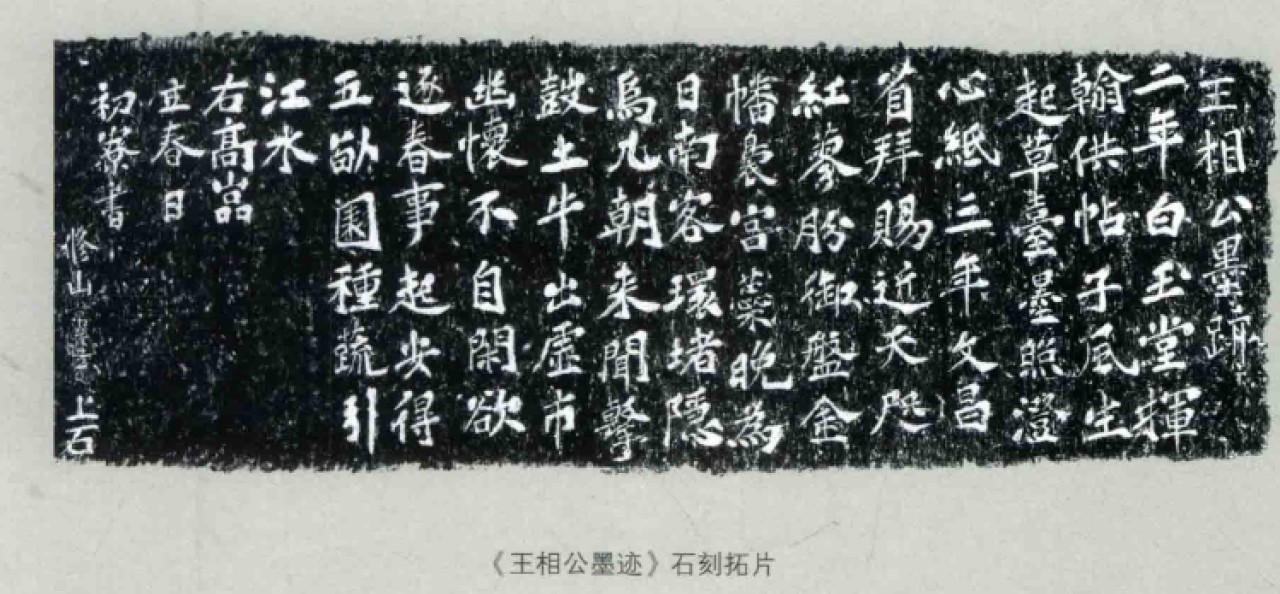 王相公墨跡
二年白玉堂揮
翰供帖子風生
起草臺墨照澄
心紙三年文昌
省拜賜近天咫
紅蓼肦御盤金
幡裊宮蘂晚為
日南客環堵隱
烏几朝来聞擊
鼓土牛出虛市
幽懷不自閑欲
逐春事起安得
五畝園種蔬引
江水
右高嵓
立春日
初寮書
修山 上石
《王相公墨迹》石刻拓片